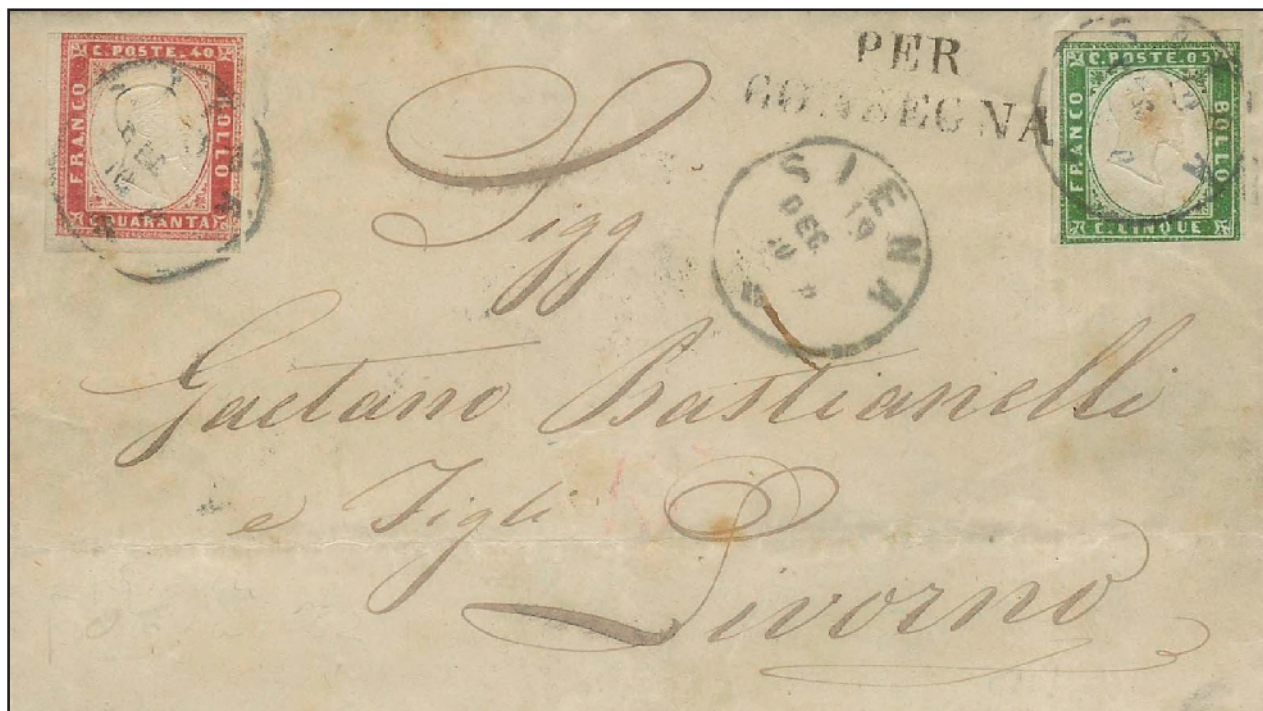 C. POSTE. 40
FRANCO
BOLLO
C. QUARANTA
PER
CONSEGNA
C. POSTE. 05
FRANCO
BOLLO
C. CINQUE
SIENA
19
DEC
Sigg
Gaetano Bastianelli
e Figli
Livorno